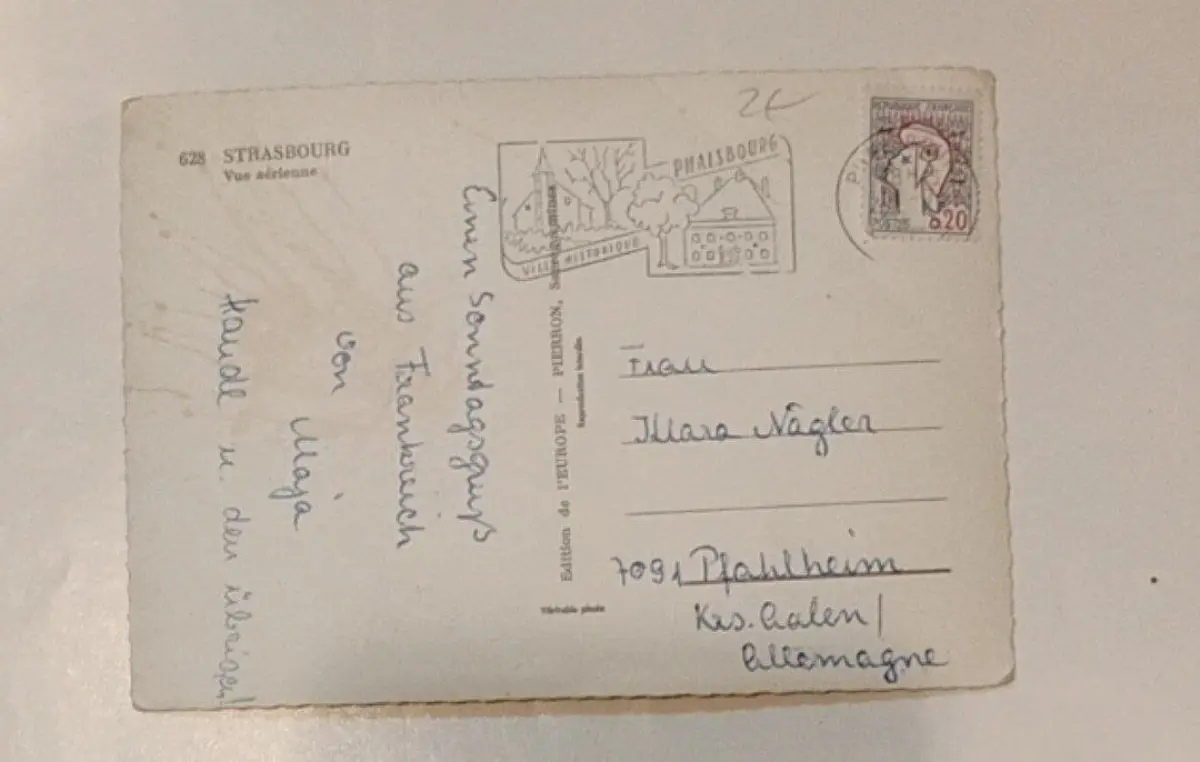 628 STRASBOURG
Vue aérienne
Einen Sonndagsgruß
aus Frankreich
von Maja
u. den übrigen!
Edition de l'EUROPE — PIERRON,
Reproduction interdite
Véritable photo
2€
PHALSBOURG
VILLE HISTORIQUE
REPUBLIQUE FRANÇAISE
POSTES
0,20
Frau
Klara Nägler
7091 Pfahlheim
Krs. Aalen /
Allemagne